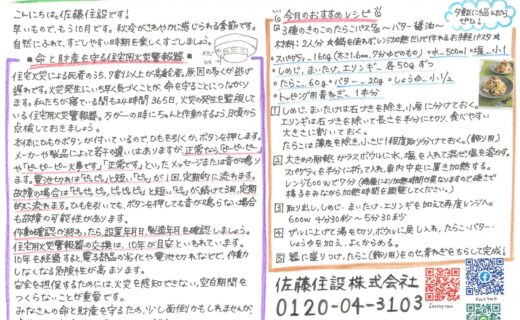 こんにちは！佐藤住設です！
早いもので、もう10月です。秋合がさわやかに感じられる季節です。
自然にふれて、すごしやすい時期を楽しくすごしましょう。
■命と財産を守る住宅用火災警報器
住宅火災による死者のうち、7割以上が高齢者、原因の多くが逃げ
遅れです。火災発生にいち早く気づくことが、命を守ることにつながり
ます。私たちが寝ている間も24時間365日、火災の発生を監視して
いる住宅用火災警報器。万が一の時にちゃんと作動するよう、日頃から
点検しておきましょう。
本体にひもやボタンが付いているので、ひもを引くか、ボタンを押します。
メーカーや製品によって若干違いはありますが、正常なら「ピーピーピー」
や「ピーピーピー火事です」「正常です」といったメッセージまたは音が鳴り
ます。電池切れは「ピッ、ピッ」と短い「ピッ」が1回、定期的に流れます。
故障の場合は「ピッピッピッ、ピッピッピッ」と短い「ピッ」が続けて3回、定期
的に流れます。ひもを引いても、ボタンを押しても音が鳴らない場合
も故障の可能性があります。
作動確認が終わったら設置年月日、製造年月日も確認しましょう。
住宅用火災警報器の交換は、10年が目安といわれています。
10年を経過すると電子部品の劣化や電池切れなどで、作動
しなくなる危険性が高まります。
安全を担保するためには、火災を感知できない空白期間を
つくらないことが重要です。
みなさんの命と財産を守るため、少し面倒かもしれませんが、
夕飯に悩んだらぜひ！
今月のおすすめレシピ
③種きのこのたらこパスタ 〜バター醤油〜
材料：2人分 ★鍋を使わずレンジ加熱だけで作れるお手軽パスタ★
・スパゲティ、160g（太さ1.6mm、7分ゆでのもの）・水、500ml・塩、小1
・しめじ、まいたけ、エリンギ、各50gずつ
・たらこ、60g・バター、20g・しょうゆ、小1/2
・トッピング用青ねぎ、1本分
1 しめじ、まいたけは石づきを除き、小房に分けておく。
エリンギは石づきを除いて長さを半分にセり、食べやすい
大きさに割いておく。
たらこは薄皮を除き、小さじ1程度取り分けておく。（飾り用）
2 大きめの耐熱ガラスボウルに水、塩を入れて混ぜて塩を溶かす。
スパゲティを半分に折って入れ、庫内中央に置き加熱する。
レンジ600Wで7分（機種により加熱時間が異なりますので様子で
様子をみながら加熱時間を調整してください。）
3 取り出し、しめじ、まいたけ、エリンギを加えて再度レンジへ
600W 4分30秒〜5分30まり
4 ザルに上げて湯を切り、ボウルに戻し入れ、たらこ、バター・
しょうゆを加え、よくからめる。
5 器に盛りつけ、たらこ（飾り用）をのせ、青ねぎをちらして完成！
佐藤住設株式会社
0120-04-3103
Instagram